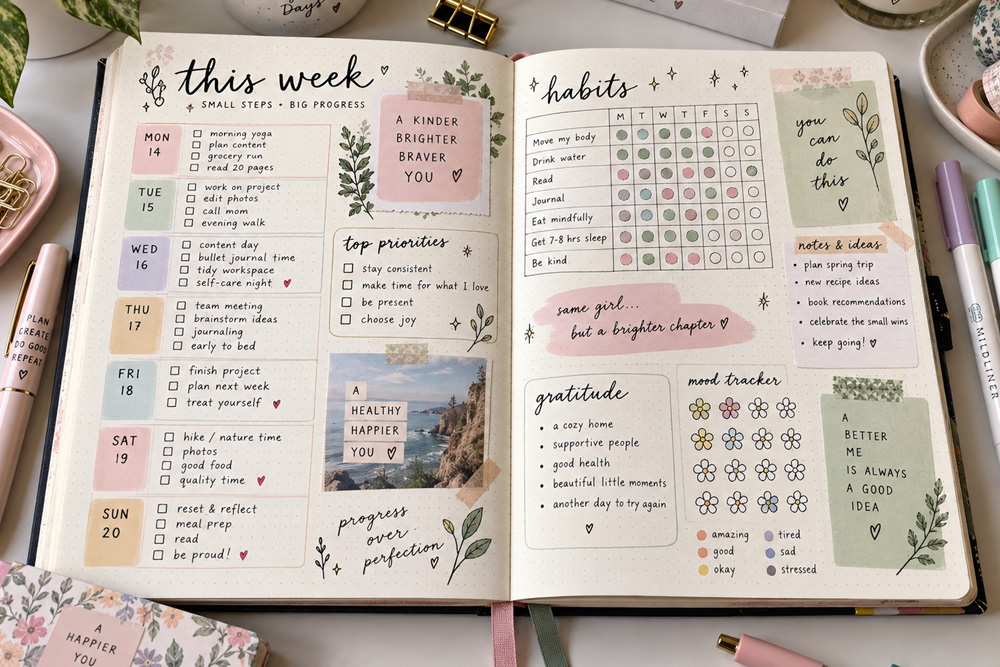 Days
this week
SMALL STEPS • BIG PROGRESS
MON
14
morning yoga
plan content
grocery run
read 20 pages
TUE
15
work on project
edit photos
call mom
evening walk
WED
16
content day
bullet journal time
tidy workspace
self-care night
THU
17
team meeting
brainstorm ideas
journaling
early to bed
FRI
18
finish project
plan next week
treat yourself
SAT
19
hike / nature time
photos
good food
quality time
SUN
20
reset & reflect
meal prep
read
be proud!
A KINDER
BRIGHTER
BRAVER
YOU
top priorities
stay consistent
make time for what I love
be present
choose joy
A
HEALTHY
HAPPIER
YOU
progress
over
perfection
habits
M T W T F S S
Move my body
Drink water
Read
Journal
Eat mindfully
Get 7-8 hrs sleep
Be kind
you
can
do
this
same girl...
but a brighter chapter
notes & ideas
• plan spring trip
• new recipe ideas
• book recommendations
• celebrate the small wins
• keep going!
gratitude
• a cozy home
• supportive people
• good health
• beautiful little moments
• another day to try again
mood tracker
amazing
good
okay
tired
sad
stressed
A
BETTER
ME
IS ALWAYS
A GOOD
IDEA
PLAN
CREATE
DO GOOD
REPEAT
MILDLINER
A
HAPPIER
YOU